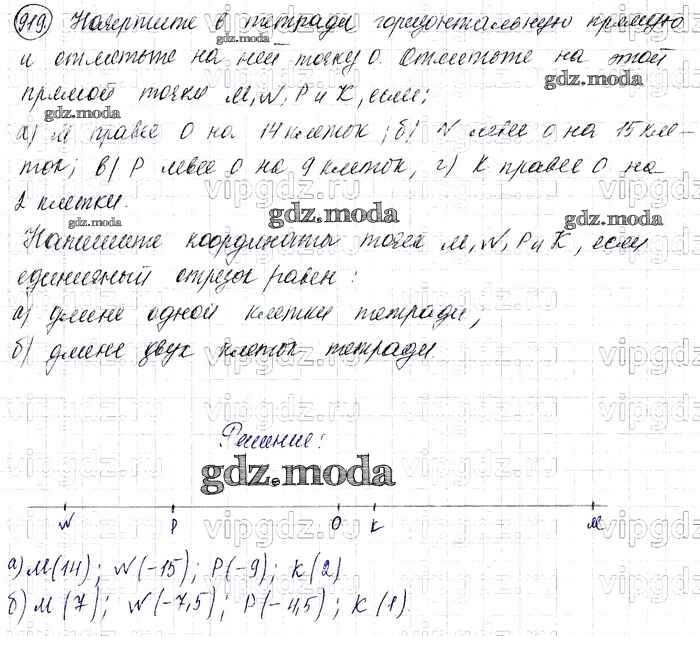 919. Начертите в тетради горизонтальную прямую
и отметьте на ней точку О. Отметьте на этой
прямой точки M, N, P и K, если;
а) M правее О на 14 клеток; б) N левее О на 15 кле-
ток; в) P левее О на 9 клеток, г) K правее О на
2 клетки.
Напишите координаты точек M, N, P и K, если
единичный отрезок равен:
а) длине одной клетки тетради;
б) длине двух клеток тетради.
Решение:
gdz.moda
N P O K M
а) M(14); N(-15); P(-9); K(2)
б) M(7); N(-7,5); P(-4,5); K(1).
gdz.moda
gdz.moda
gdz.moda
gdz.moda
gdz.moda
vipgdz.ru